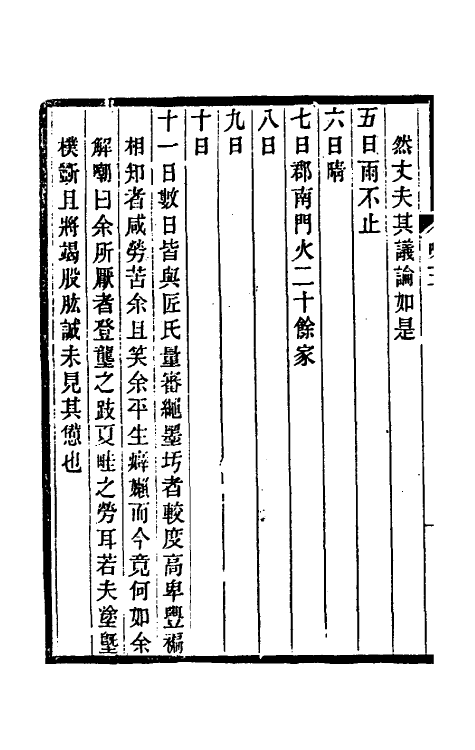 然丈夫其議論如是
五日雨不止
六日晴
七日郡南門火二十餘家
八日
九日
十日
十一日數日皆與匠氏量審繩墨圬者較度高卑豐褊
相知者咸勞苦余且笑余平生癖嬾而今竟何如余
解嘲曰余所厭者登壟之跂夏畦之勞耳若夫塗墍
樸斲且將竭股肱誠未見其憊也